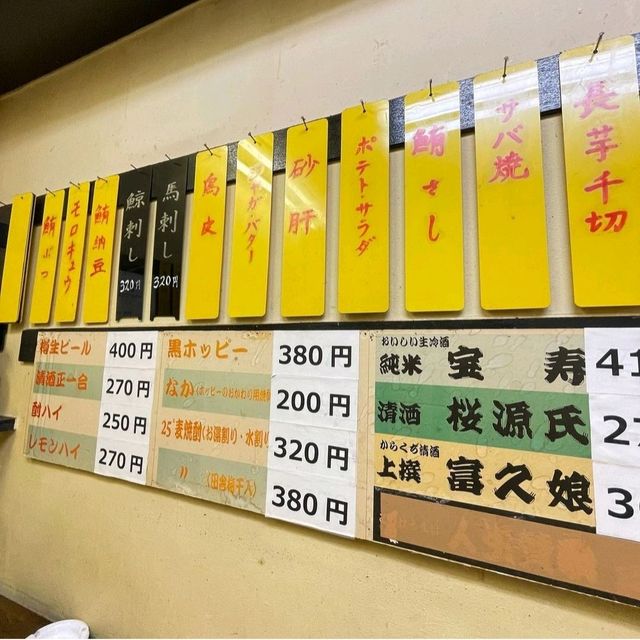 鮪ぶつ
モロキュウ
鮪納豆
鯨刺し 320円
馬刺し 320円
鳥皮
ジャガ・バター
砂肝
ポテト・サラダ
鮪さし
サバ焼
長芋千切
樽生ビール 400円
清酒正一合 270円
酎ハイ 250円
レモンハイ 270円
黒ホッピー 380円
なか(ホッピーのおかわり用焼酎 200円
25°麦焼酎(お湯割り・水割り 320円
〃 (田舎梅干入) 380円
おいしい生冷酒
純米 宝寿 41
清酒 桜源氏 27
からくち清酒
上撰 富久娘